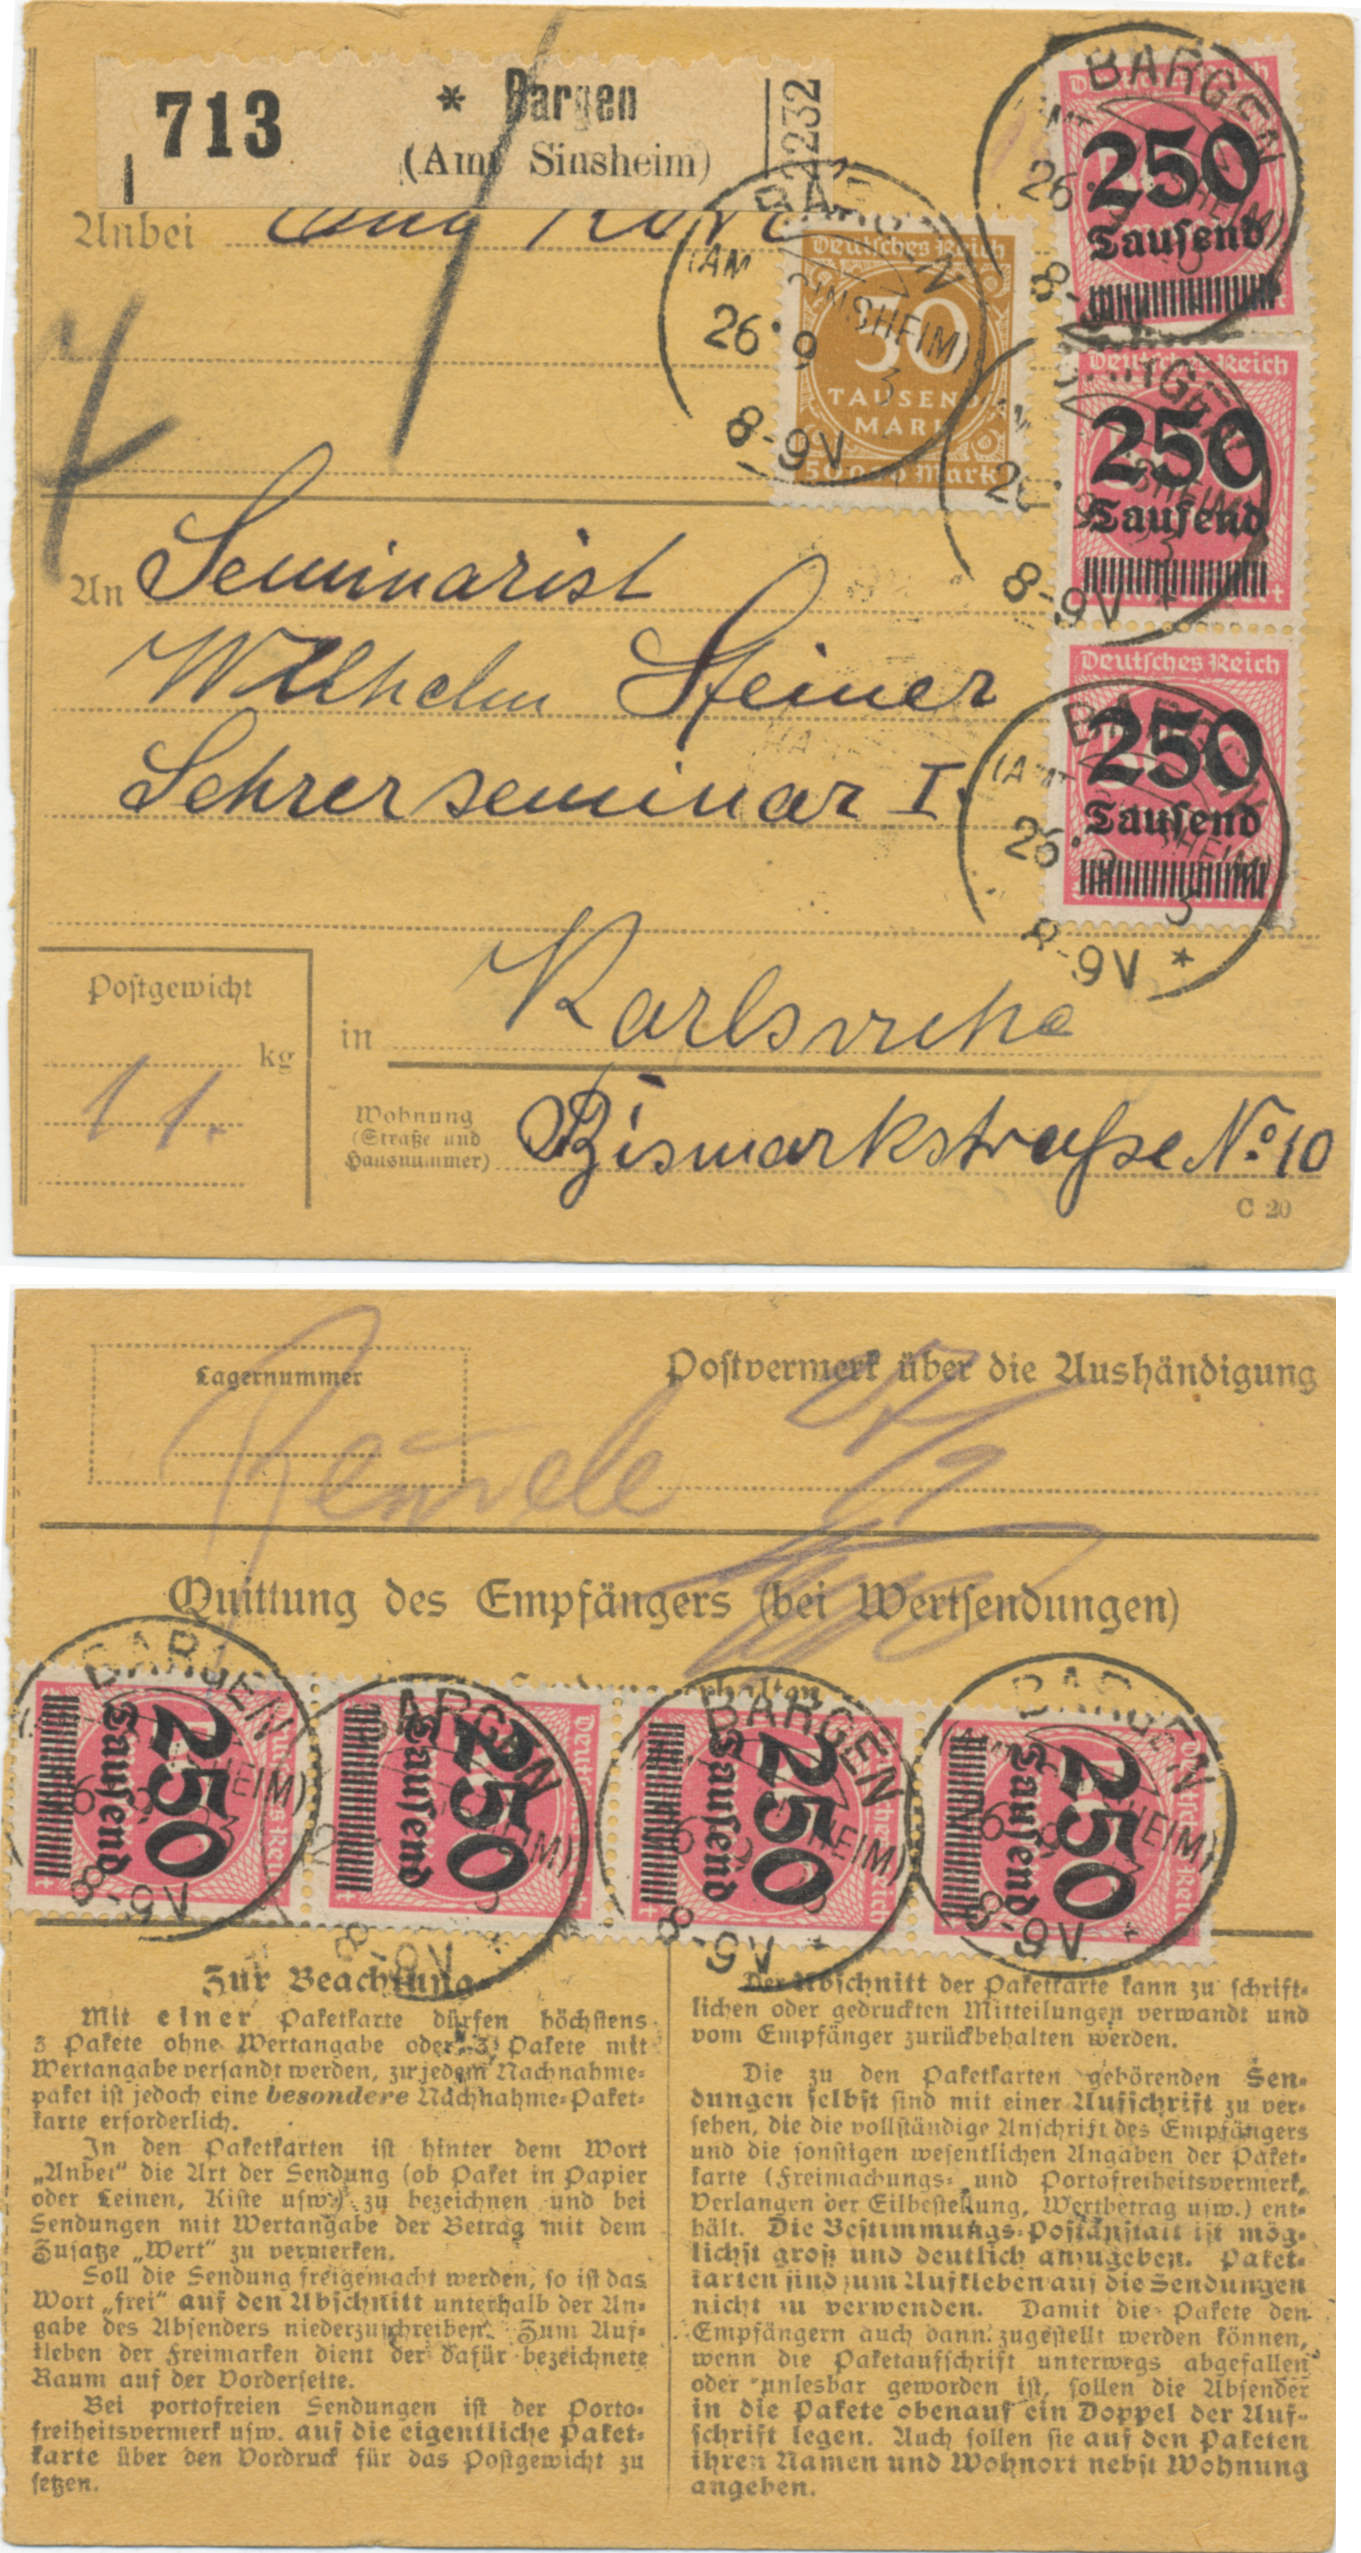 713
* Bargen
(Amt Sinsheim)
2232
Anbei
BARGEN
(AMT SINSHEIM)
26. 9 3
8-9V
Deutsches Reich
50
TAUSEND
MARK
50000 Mark
BARGEN
26
8-
250
Tausend
BARGEN
8-9V *
Deutsches Reich
250
Tausend
BARGEN
26. 3
8-9V *
Deutsches Reich
250
Tausend
An Seminarist
Wilhelm Steiner
Lehrerseminar I.
Postgewicht
kg
11.
in Karlsruhe
Wohnung
(Straße und
Hausnummer)
Bismarkstraße No. 10
C 20
Lagernummer
Postvermerk über die Aushändigung
27/9
Quittung des Empfängers (bei Wertsendungen)
erhalten
BARGEN
8-9V
250
Tausend
BARGEN
8-9V
250
Tausend
BARGEN
8-9V
250
Tausend
BARGEN
8-9V
250
Tausend
Zur Beachtung
Mit einer Paketkarte dürfen höchstens
3 Pakete ohne Wertangabe oder 3 Pakete mit
Wertangabe versandt werden, zu jedem Nachnahme-
paket ist jedoch eine besondere Nachnahme-Paket-
karte erforderlich.
In den Paketkarten ist hinter dem Wort
„Anbei“ die Art der Sendung (ob Paket in Papier
oder Leinen, Kiste usw.) zu bezeichnen und bei
Sendungen mit Wertangabe der Betrag mit dem
Zusatze „Wert“ zu vermerken.
Soll die Sendung freigemacht werden, so ist das
Wort „frei“ auf den Abschnitt unterhalb der An-
gabe des Absenders niederzuschreiben. Zum Auf-
kleben der Freimarken dient der dafür bezeichnete
Raum auf der Vorderseite.
Bei portofreien Sendungen ist der Porto-
freiheitsvermerk usw. auf die eigentliche Paket-
karte über den Vordruck für das Postgewicht zu
setzen.
Der Abschnitt der Paketkarte kann zu schrift-
lichen oder gedruckten Mitteilungen verwandt und
vom Empfänger zurückbehalten werden.
Die zu den Paketkarten gehörenden Sen-
dungen selbst sind mit einer Aufschrift zu ver-
sehen, die die vollständige Anschrift des Empfängers
und die sonstigen wesentlichen Angaben der Paket-
karte (Freimachungs- und Portofreiheitsvermerk,
Verlangen der Eilbestellung, Wertbetrag usw.) ent-
hält. Die Bestimmungs-Postanstalt ist mög-
lichst groß und deutlich anzugeben. Paket-
karten sind zum Aufkleben auf die Sendungen
nicht zu verwenden. Damit die Pakete den
Empfängern auch dann zugestellt werden können,
wenn die Paketaufschrift unterwegs abgefallen
oder unlesbar geworden ist, sollen die Absender
in die Pakete obenauf ein Doppel der Auf-
schrift legen. Auch sollen sie auf den Paketen
ihren Namen und Wohnort nebst Wohnung
angeben.